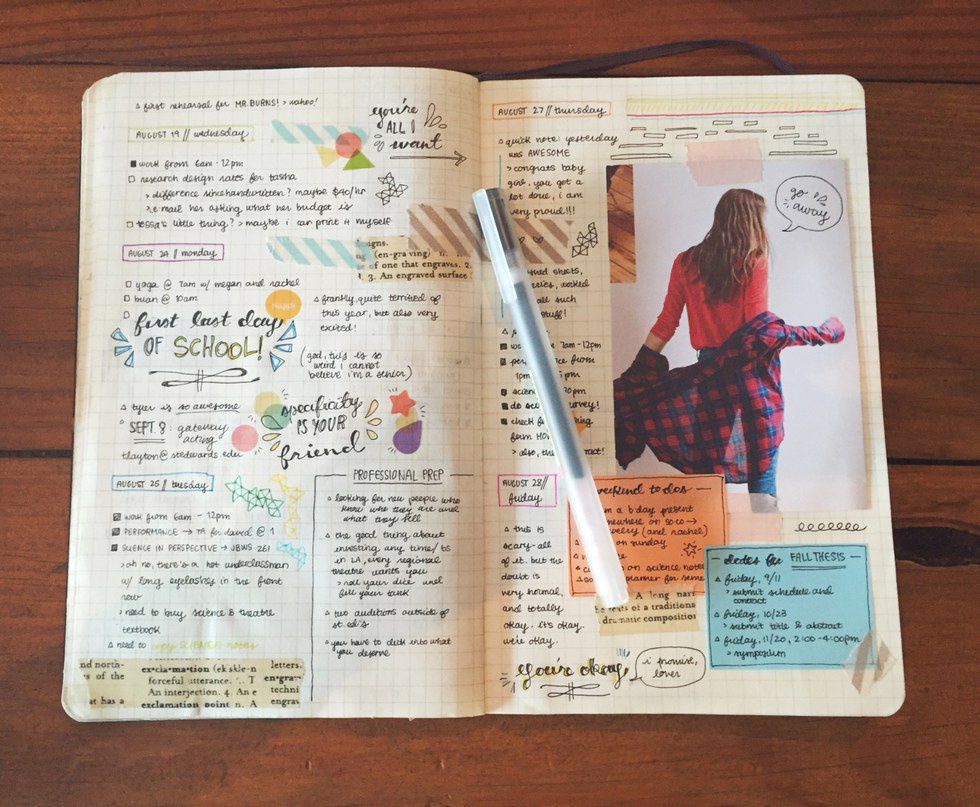 first rehearsal for MR. BURNS! > wahoo!
you're
ALL I
want
AUGUST 19 // wednesday
work from 6am - 12pm
research design rates for tasha
> difference since handwritten? maybe $40/hr
> e-mail her asking what her budget is
tessa's little thing? > maybe i can print it myself
AUGUST 24 // monday
igns.
(en-graving) n.
of one that engraves. 2.
3. An engraved surface
yoga @ 7am w/ megan and rachel
brian @ 10am
first last day
OF SCHOOL!
frankly, quite terrified of
this year, but also very
excited!
(god, this is so
weird i cannot
believe i'm a senior)
tyler is so awesome
SEPT 8: gateway
acting
tlayton@stedwards.edu
specificity
IS YOUR
friend
AUGUST 25 // tuesday
work from 6am - 12pm
PERFORMANCE → TA for david @ 1
SCIENCE IN PERSPECTIVE → JBWS 261
> oh no, there's a hot underclassman
w/ long eyelashes in the front
row
> need to buy science & theatre
textbook
need to copy SCIENCE notes
nd north-
s of the
at has a
ex·cla·ma·tion (ek skle-n
forceful utterance.
An interjection. 4. An e
exclamation point n. A
letters.
engrav
techni
engrav
PROFESSIONAL PREP
looking for new people who
know who they are and
what they sell
the good thing about
investing any time/ $$
in LA, every regional
theatre wants you
> roll your dice and
fill your tank
two auditions outside of
st. ed's
you have to click into what
you deserve
AUGUST 27 // thursday
quick note: yesterday
was AWESOME
> congrats baby
girl, you got a
lot done, i am
very proud!!!
sheets,
worked
all such
stuff!
7am - 12pm
from
1pm
do survey!
check
form
> also, the
go
away
AUGUST 28 //
friday
this is
scary - all
of it. but the
doubt is
very normal,
and totally
okay. it's okay.
we're okay.
weekend to dos
a b'day present
somewhere on soco →
(and rachel)
on sunday
on science notes
planner for
A long narr
texts of a traditions
dramatic composition
dates for FALL THESIS
friday, 9/11
> submit schedule and
contract
friday, 10/23
> submit title & abstract
friday, 11/20, 2:00 - 4:00pm
> symposium
you're okay
i promise,
lover